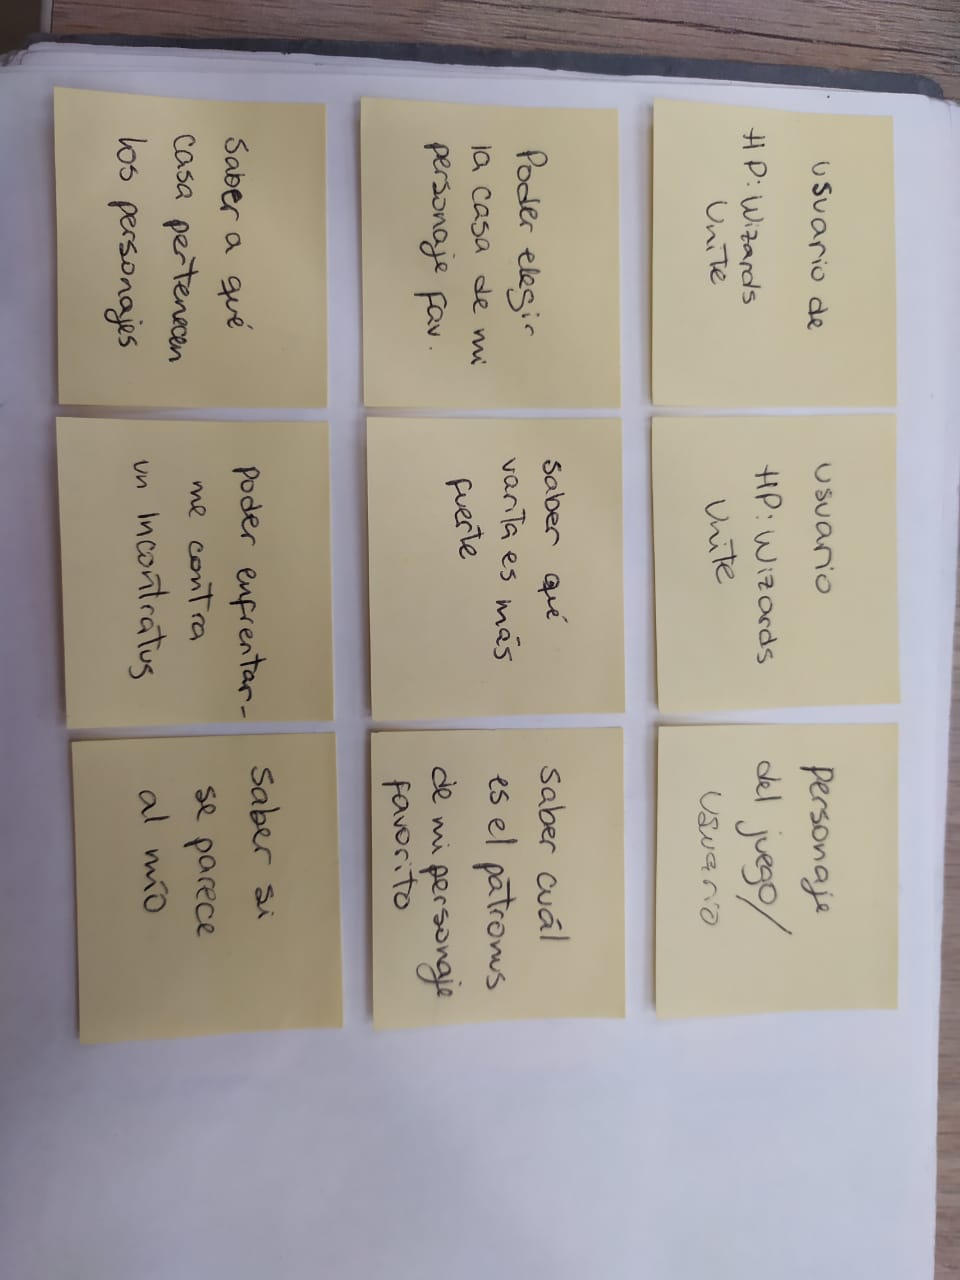 usuario de
HP: Wizards
Unite
usuario
HP: Wizards
Unite
Personaje
del juego/
usuario
Poder elegir
la casa de mi
personaje fav.
saber qué
varita es más
fuerte
saber cuál
es el patronus
de mi personaje
favorito
saber a qué
casa pertenecen
los personajes
poder enfrentar-
me contra
un Incontratus
saber si
se parece
al mío